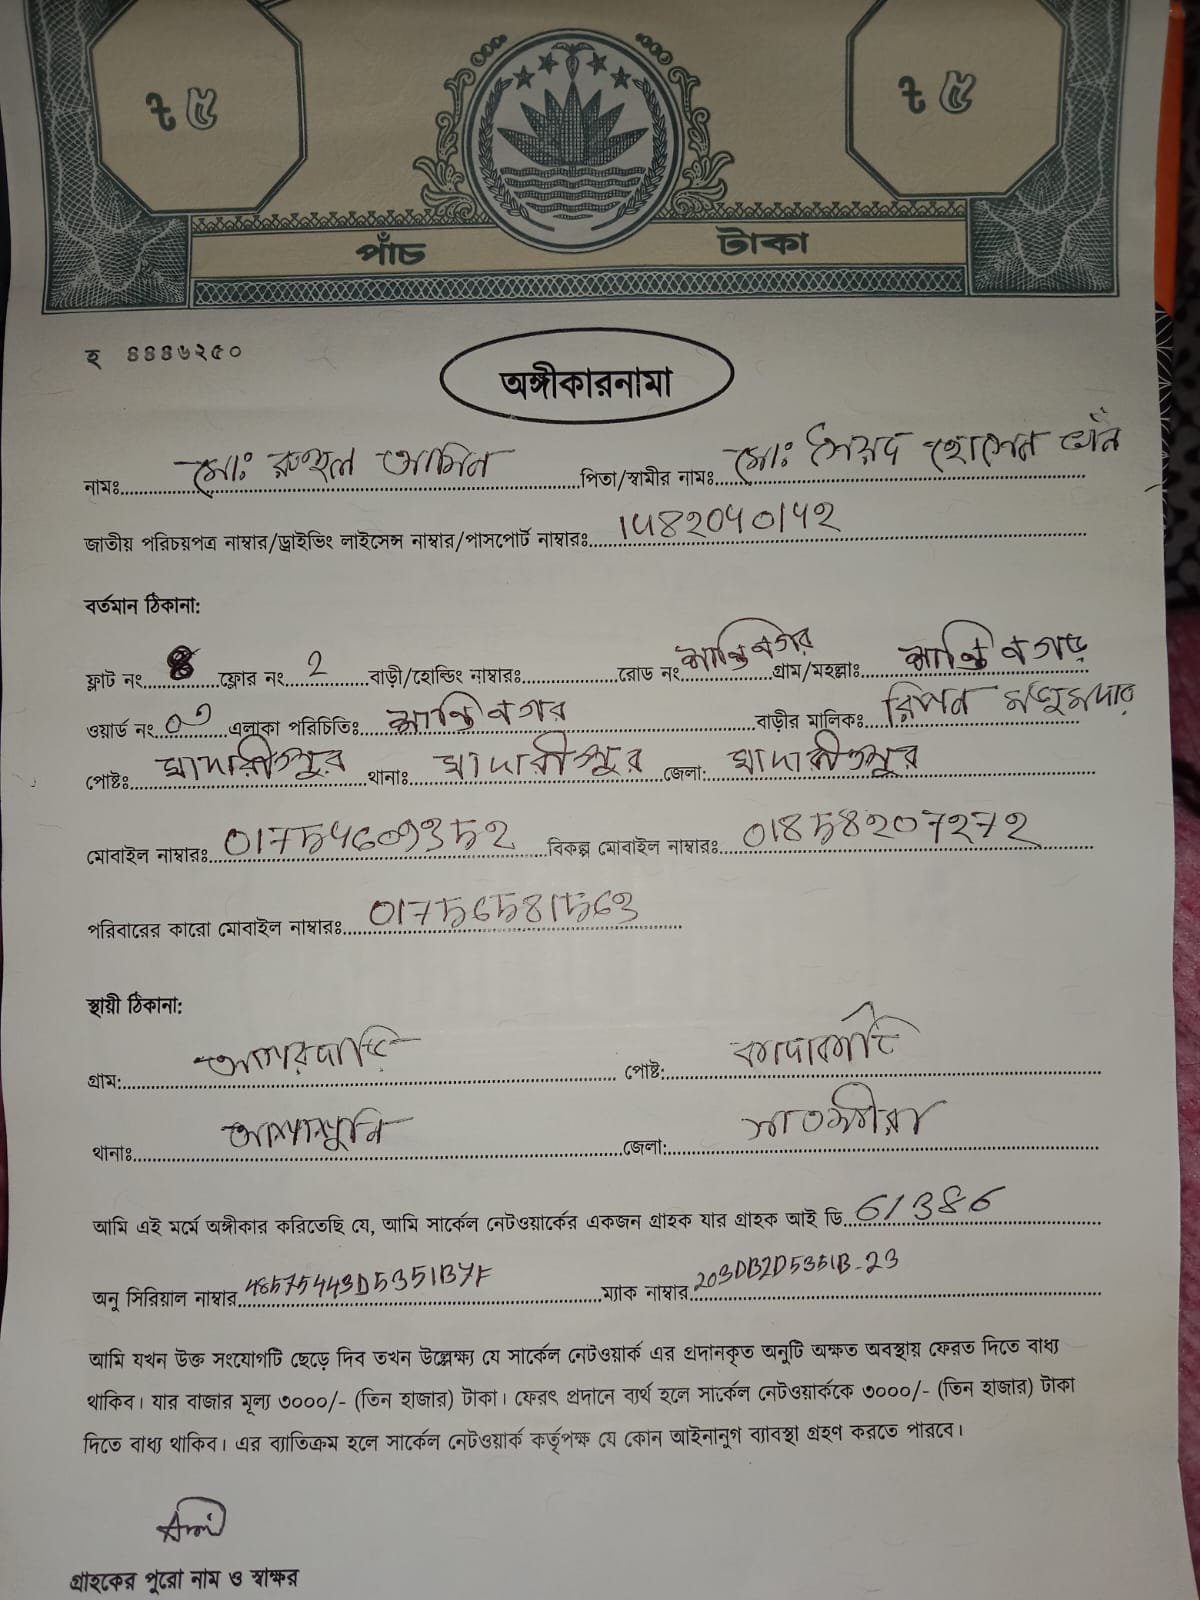 ট ৫ ট ৫
পাঁচ টাকা
হ ৪৪৪৬২৫০
অঙ্গীকারনামা
নামঃ মোঃ রুহুল আমিন পিতা/স্বামীর নামঃ মোঃ সৈয়দ হোসেন
জাতীয় পরিচয়পত্র নাম্বার/ড্রাইভিং লাইসেন্স নাম্বার/পাসপোর্ট নাম্বারঃ
বর্তমান ঠিকানা:
ফ্লাট নং ফ্লোর নং 2 বাড়ী/হোল্ডিং নাম্বারঃ রোড নং শান্তিনগর গ্রাম/মহল্লাঃ শান্তিনগড়
ওয়ার্ড নং এলাকা পরিচিতিঃ শান্তিনগর বাড়ীর মালিকঃ রিপন মজুমদার
পোষ্টঃ মাদারীপুর থানাঃ মাদারীপুর জেলা: মাদারীপুর
মোবাইল নাম্বারঃ বিকল্প মোবাইল নাম্বারঃ
পরিবারের কারো মোবাইল নাম্বারঃ
স্থায়ী ঠিকানা:
গ্রাম: পোষ্ট: কাদাকাটি
থানাঃ আশাশুনি জেলা: সাতক্ষীরা
আমি এই মর্মে অঙ্গীকার করিতেছি যে, আমি সার্কেল নেটওয়ার্কের একজন গ্রাহক যার গ্রাহক আই ডি 61386
অনু সিরিয়াল নাম্বার 48575443D5351B7F ম্যাক নাম্বার 203DB2D5351B-23
আমি যখন উক্ত সংযোগটি ছেড়ে দিব তখন উল্লেক্ষ্য যে সার্কেল নেটওয়ার্ক এর প্রদানকৃত অনুটি অক্ষত অবস্থায় ফেরত দিতে বাধ্য
থাকিব। যার বাজার মূল্য ৩০০০/- (তিন হাজার) টাকা। ফেরৎ প্রদানে ব্যর্থ হলে সার্কেল নেটওয়ার্ককে ৩০০০/- (তিন হাজার) টাকা
দিতে বাধ্য থাকিব। এর ব্যাতিক্রম হলে সার্কেল নেটওয়ার্ক কর্তৃপক্ষ যে কোন আইনানুগ ব্যাবস্থা গ্রহণ করতে পারবে।
গ্রাহকের পুরো নাম ও স্বাক্ষর